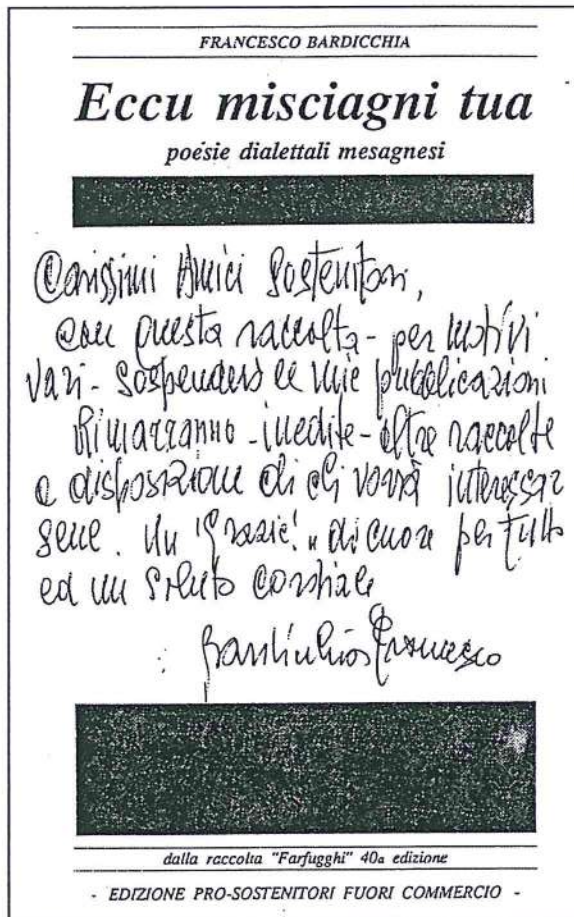 FRANCESCO BARDICCHIA
Eccu misciagni tua
poesie dialettali mesagnesi
Carissimi Amici Sostenitori,
con questa raccolta - per motivi
vari - sospenderò le mie pubblicazioni
Rimarranno - inedite - altre raccolte
a disposizione di chi vorrà interessar
sene. Un "Grazie!" di cuore per tutto
ed un saluto cordiale
Bardicchia Francesco
dalla raccolta "Farfugghi" 40a edizione
- EDIZIONE PRO-SOSTENITORI FUORI COMMERCIO -